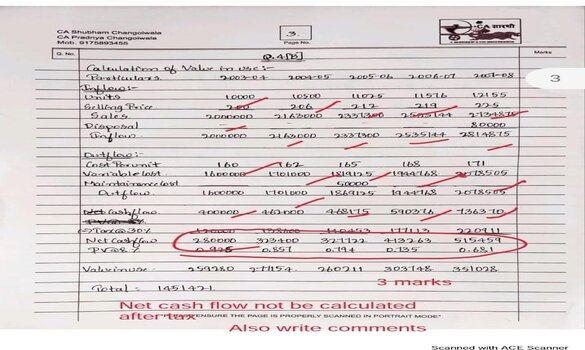 CA Shubham Changoiwala
CA Pradnya Changoiwala
Mob. 9175893455
3
Page No.
CA सारथी
Q. No.
Q.4(B)
Marks
Calculation of Value in use:-
Particulars 2003-04 2004-05 2005-06 2006-07 2007-08
Inflow:-
Units 10000 10500 11025 11576 12155
Selling Price 200 206 212 219 225
Sales 2000000 2163000 2337300 2535144 2734875
Disposal 80000
Inflow 2000000 2163000 2337300 2535144 2814875
Outflow:
Cost Per unit 160 162 165 168 171
Variable Cost 1600000 1701000 1819125 1944768 2078505
Maintenance Cost 50000
Outflow 1600000 1701000 1869125 1944768 2078505
Net Cashflow 400000 462000 468175 590376 736370
Tax@30% 138600 140453 177113 220911
Net Cashflow 280000 323400 327722 413263 515459
PV@8% 0.926 0.857 0.794 0.735 0.681
Value in use 259280 277154 260211 303748 351028
3 marks
Total: 1451421
Net cash flow not be calculated
after tax
ENSURE THE PAGE IS PROPERLY SCANNED IN PORTRAIT MODE"
Also write comments
3
Scanned with ACE Scanner